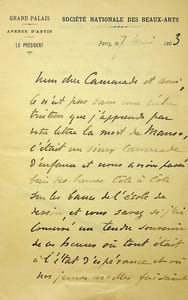 GRAND PALAIS
AVENUE D'ANTIN
LE PRÉSIDENT
SOCIÉTÉ NATIONALE DES BEAUX-ARTS
Paris, 7 1903
Mon cher Camarade et ami,
Ce n'est pas sans une
tristesse que j'apprends par
votre lettre la mort de
c'était un vieux camarade
d'enfance et nous avions passé
bien des heures Côte à Côte
sur les bancs de l'École de
dessin, et vous savez si j'ai
conservé un tendre souvenir
de ces heures où tout était
à l'État d'espérance et où
nos jeunes faisaient